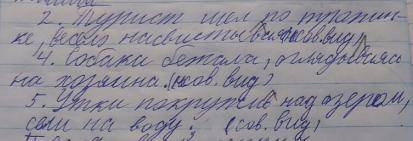 2. Турист шел по тропин-
ке, весело насвистывая (несов. вид)
4. Собака бежала, оглядываясь
на хозяина. (несов. вид)
5. Утки покружив над озером,
сели на воду. (сов. вид)